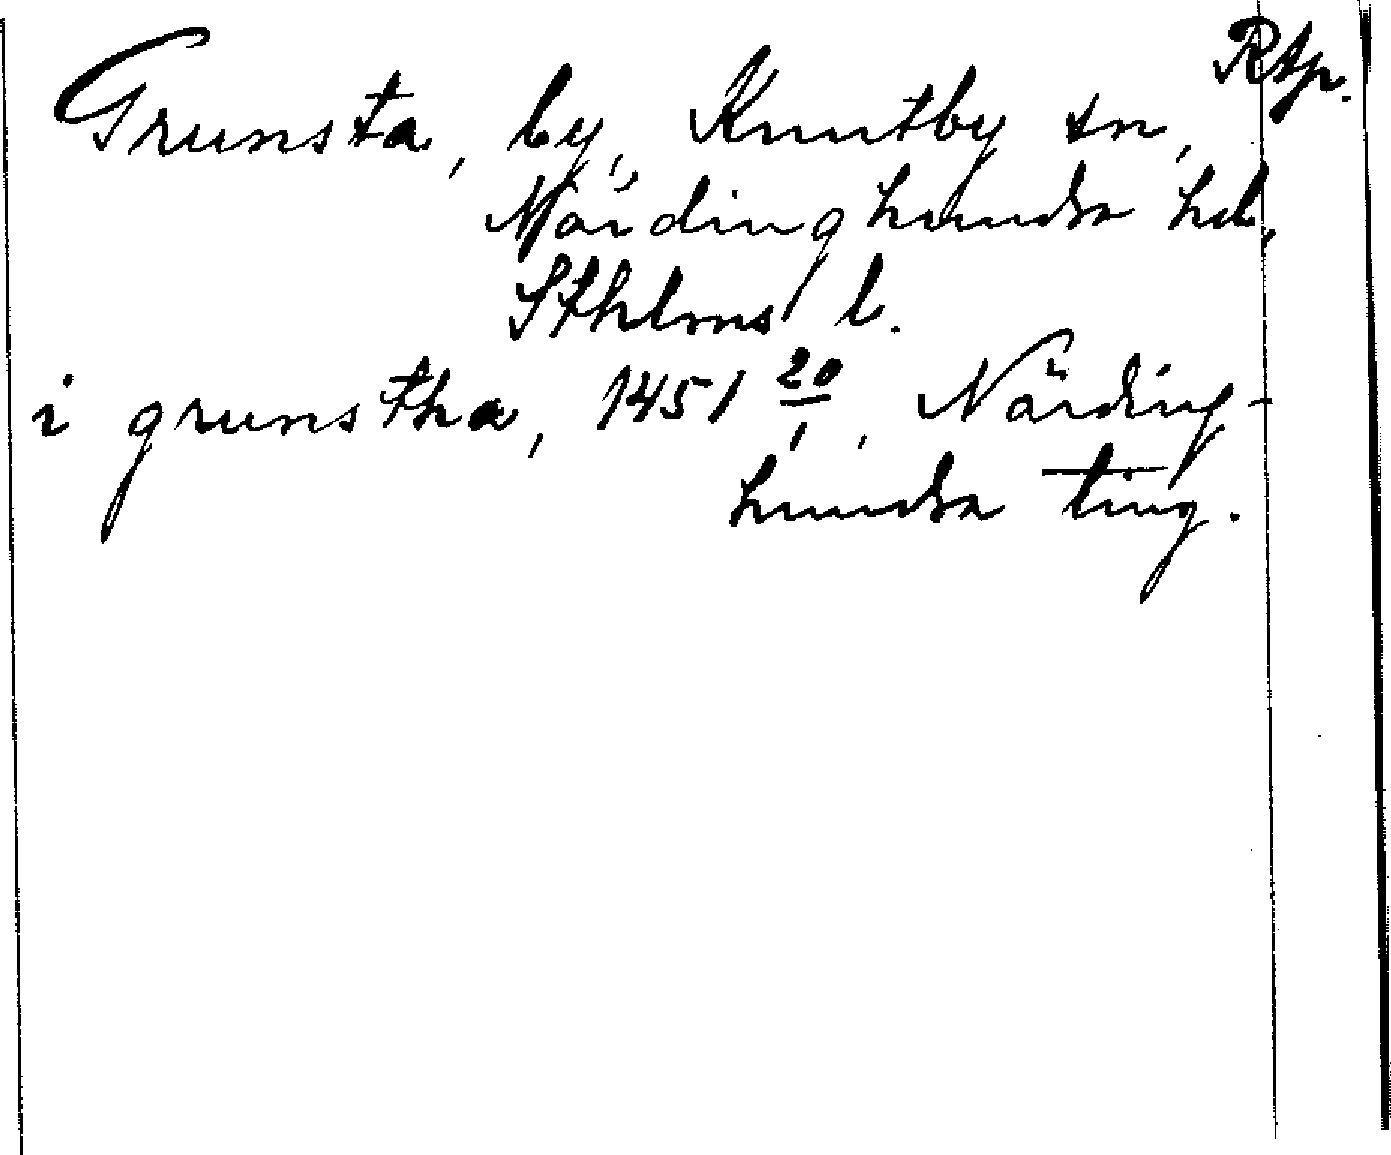 Rtp.
Grunsta, by, Knutby sn,
Närdinghundra hd,
Sthlms l.
i grunstha, 1451 20/1, Närding-
hundra ting.